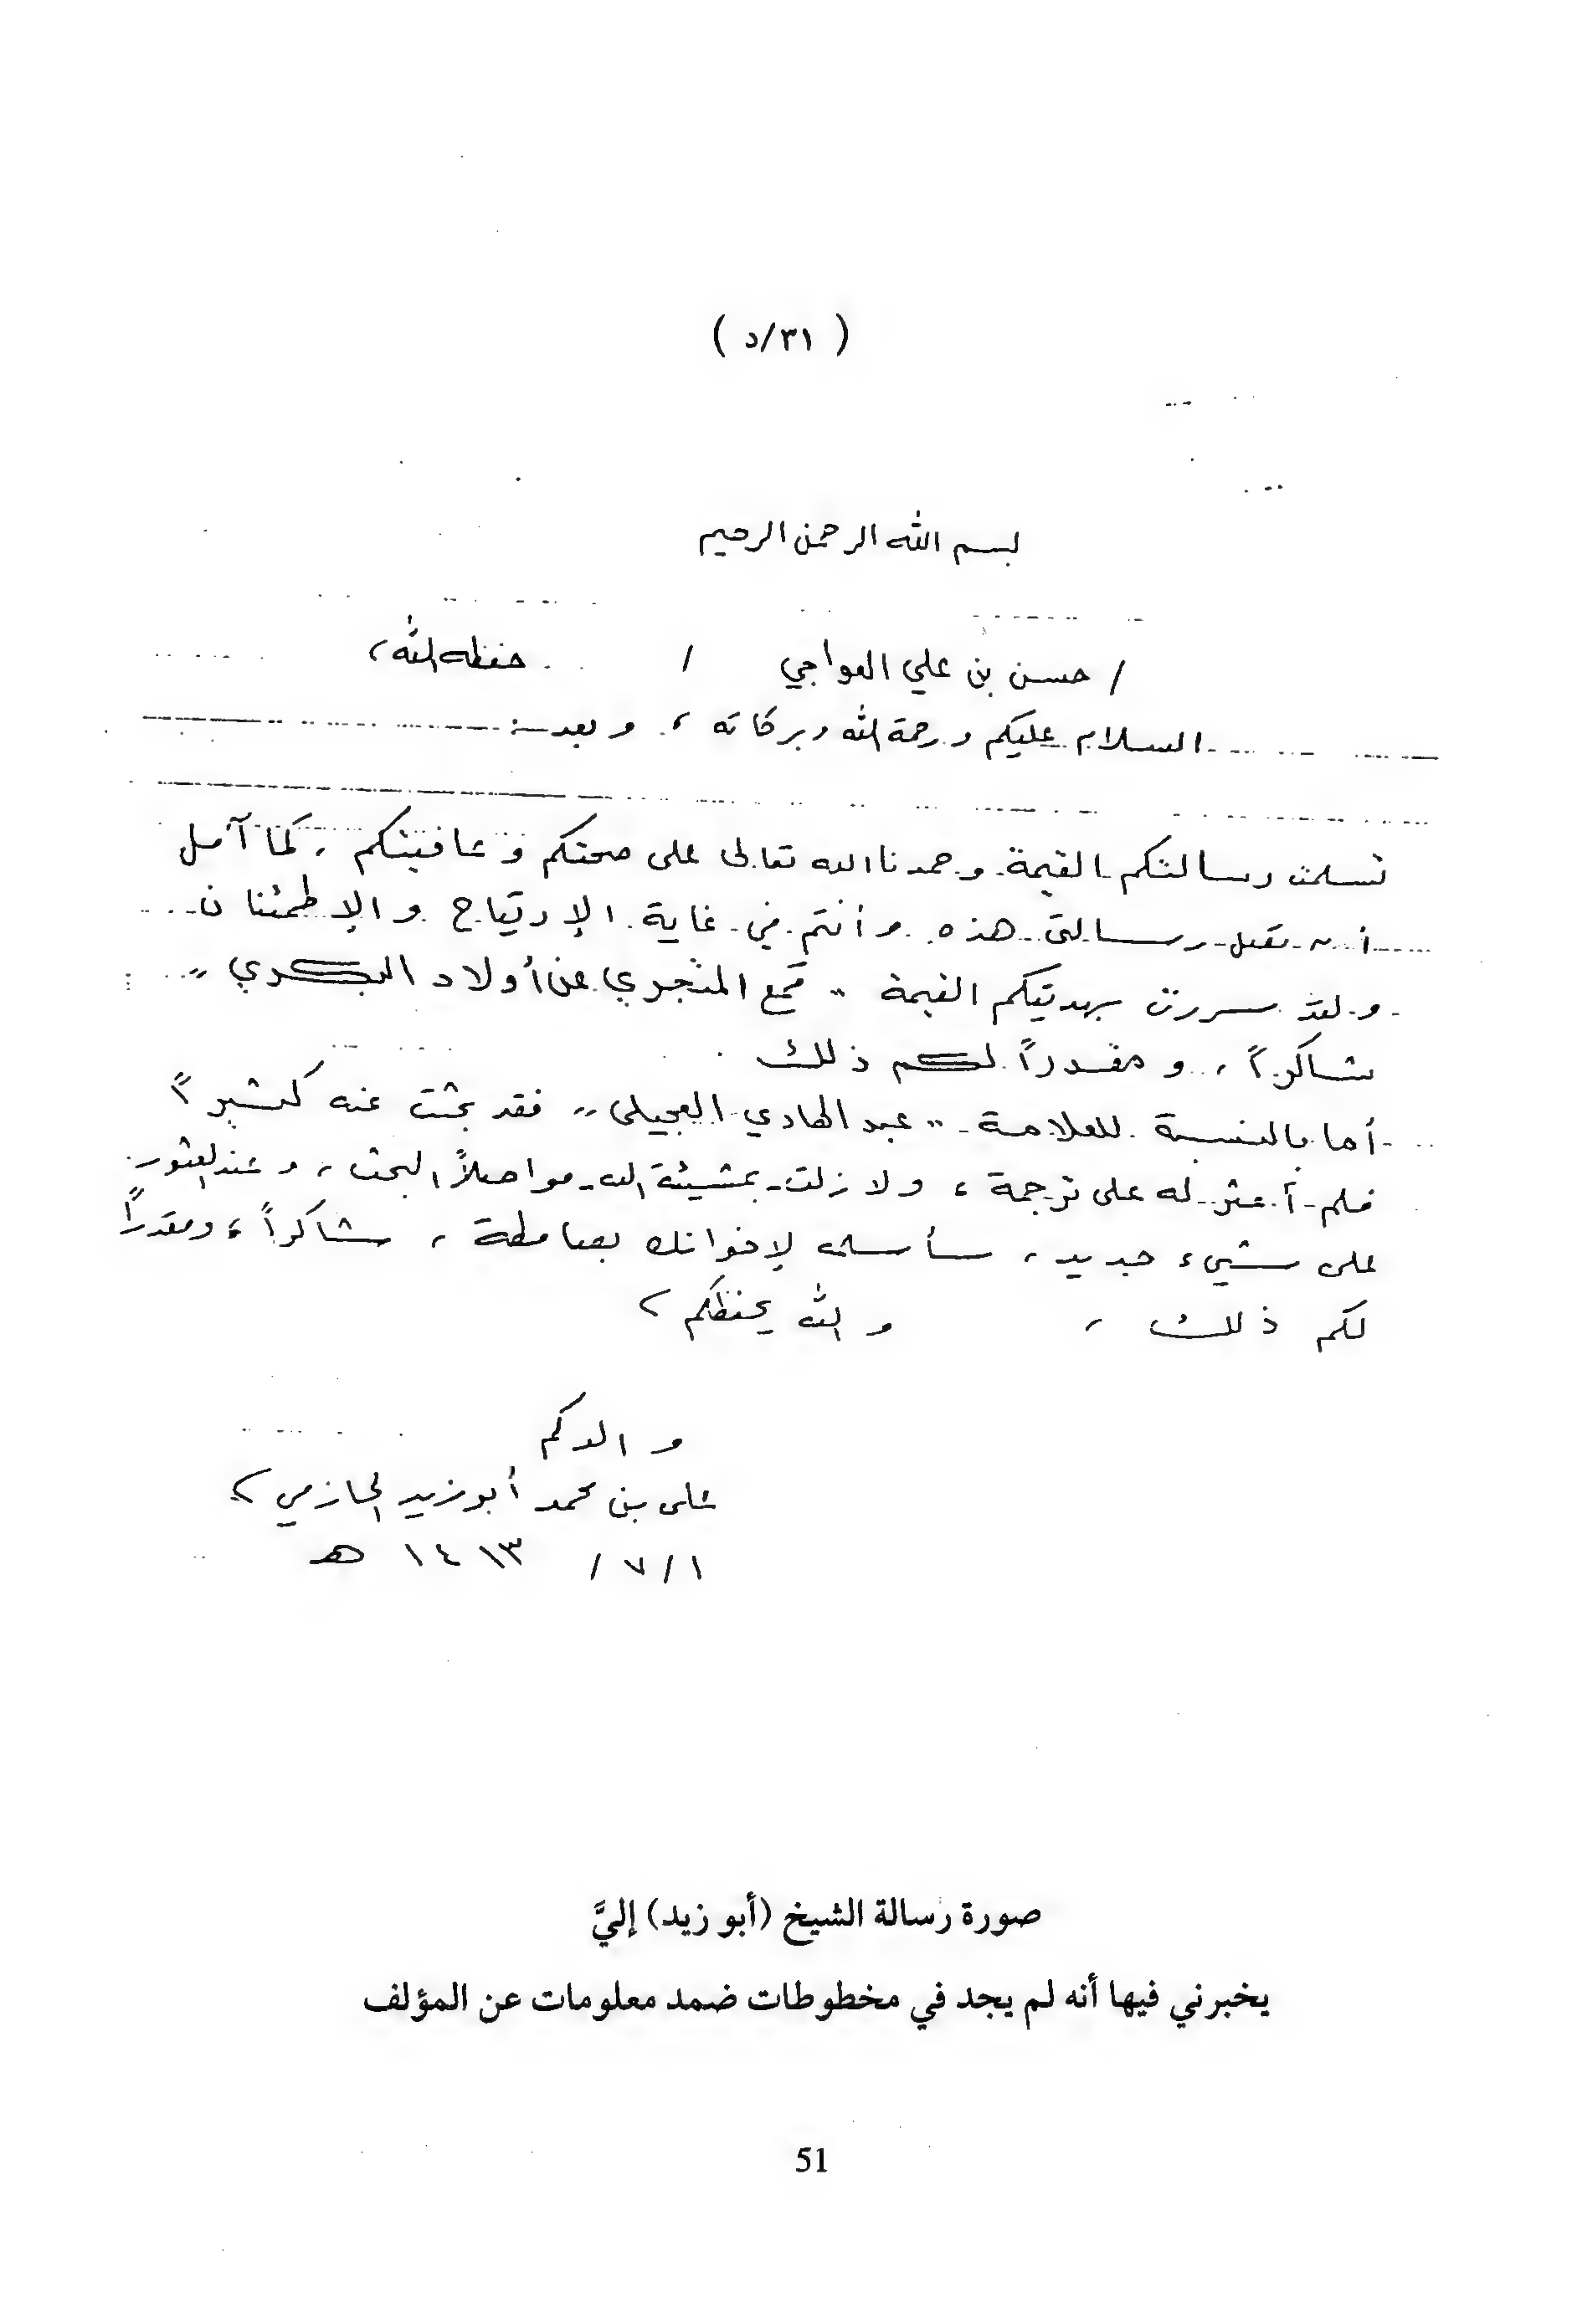 ( ٣١/د )
بسم الله الرحمن الرحيم
/ حسن بن علي العواجي / حفظه الله،
السلام عليكم ورحمة الله وبركاته ، وبعد :
تسلمت رسالتكم القيمة وحمدنا الله تعالى على صحتكم وعافيتكم ، كما آمل
أن تصل رسالتي هذه وأنتم في غاية الإرتياح والإطمئنان
ولقد سررت بهديتكم القيمة " قمع المتجري عن أولاد البكري "
شاكراً ، ومقدراً لكم ذلك .
أما بالنسبة للعلامة " عبد الهادي العجيلي " فقد بحثت عنه كثيراً
فلم أعثر له على ترجمة ، ولا زلت بمشيئة الله مواصلاً البحث ، وعند العثور
على شيء جديد ، لإخوانك بصامطة ، شاكراً ، ومقدراً
لكم ذلك ، والله يحفظكم
والدكم
علي بن محمد أبو زيد الحازمي
١ / ٧ / ١٤١٣ هـ
صورة رسالة الشيخ (أبو زيد) إليَّ
يخبرني فيها أنه لم يجد في مخطوطات ضمد معلومات عن المؤلف
51